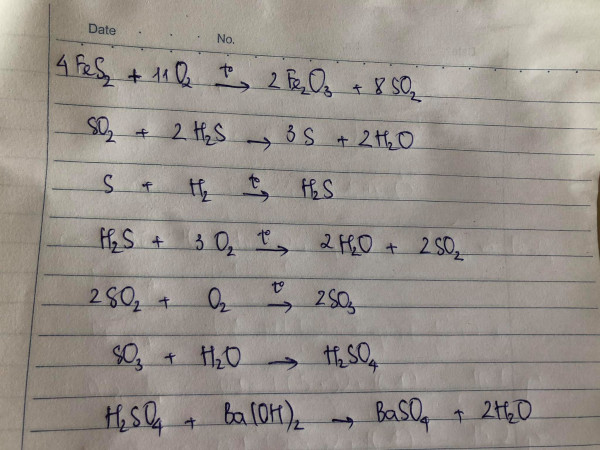 Date No.
4FeS₂ + 11O₂ t° → 2Fe₂O₃ + 8SO₂
SO₂ + 2H₂S → 3S + 2H₂O
S + H₂ t° → H₂S
H₂S + 3O₂ t° → 2H₂O + 2SO₂
2SO₂ + O₂ t° → 2SO₃
SO₃ + H₂O → H₂SO₄
H₂SO₄ + Ba(OH)₂ → BaSO₄ + 2H₂O